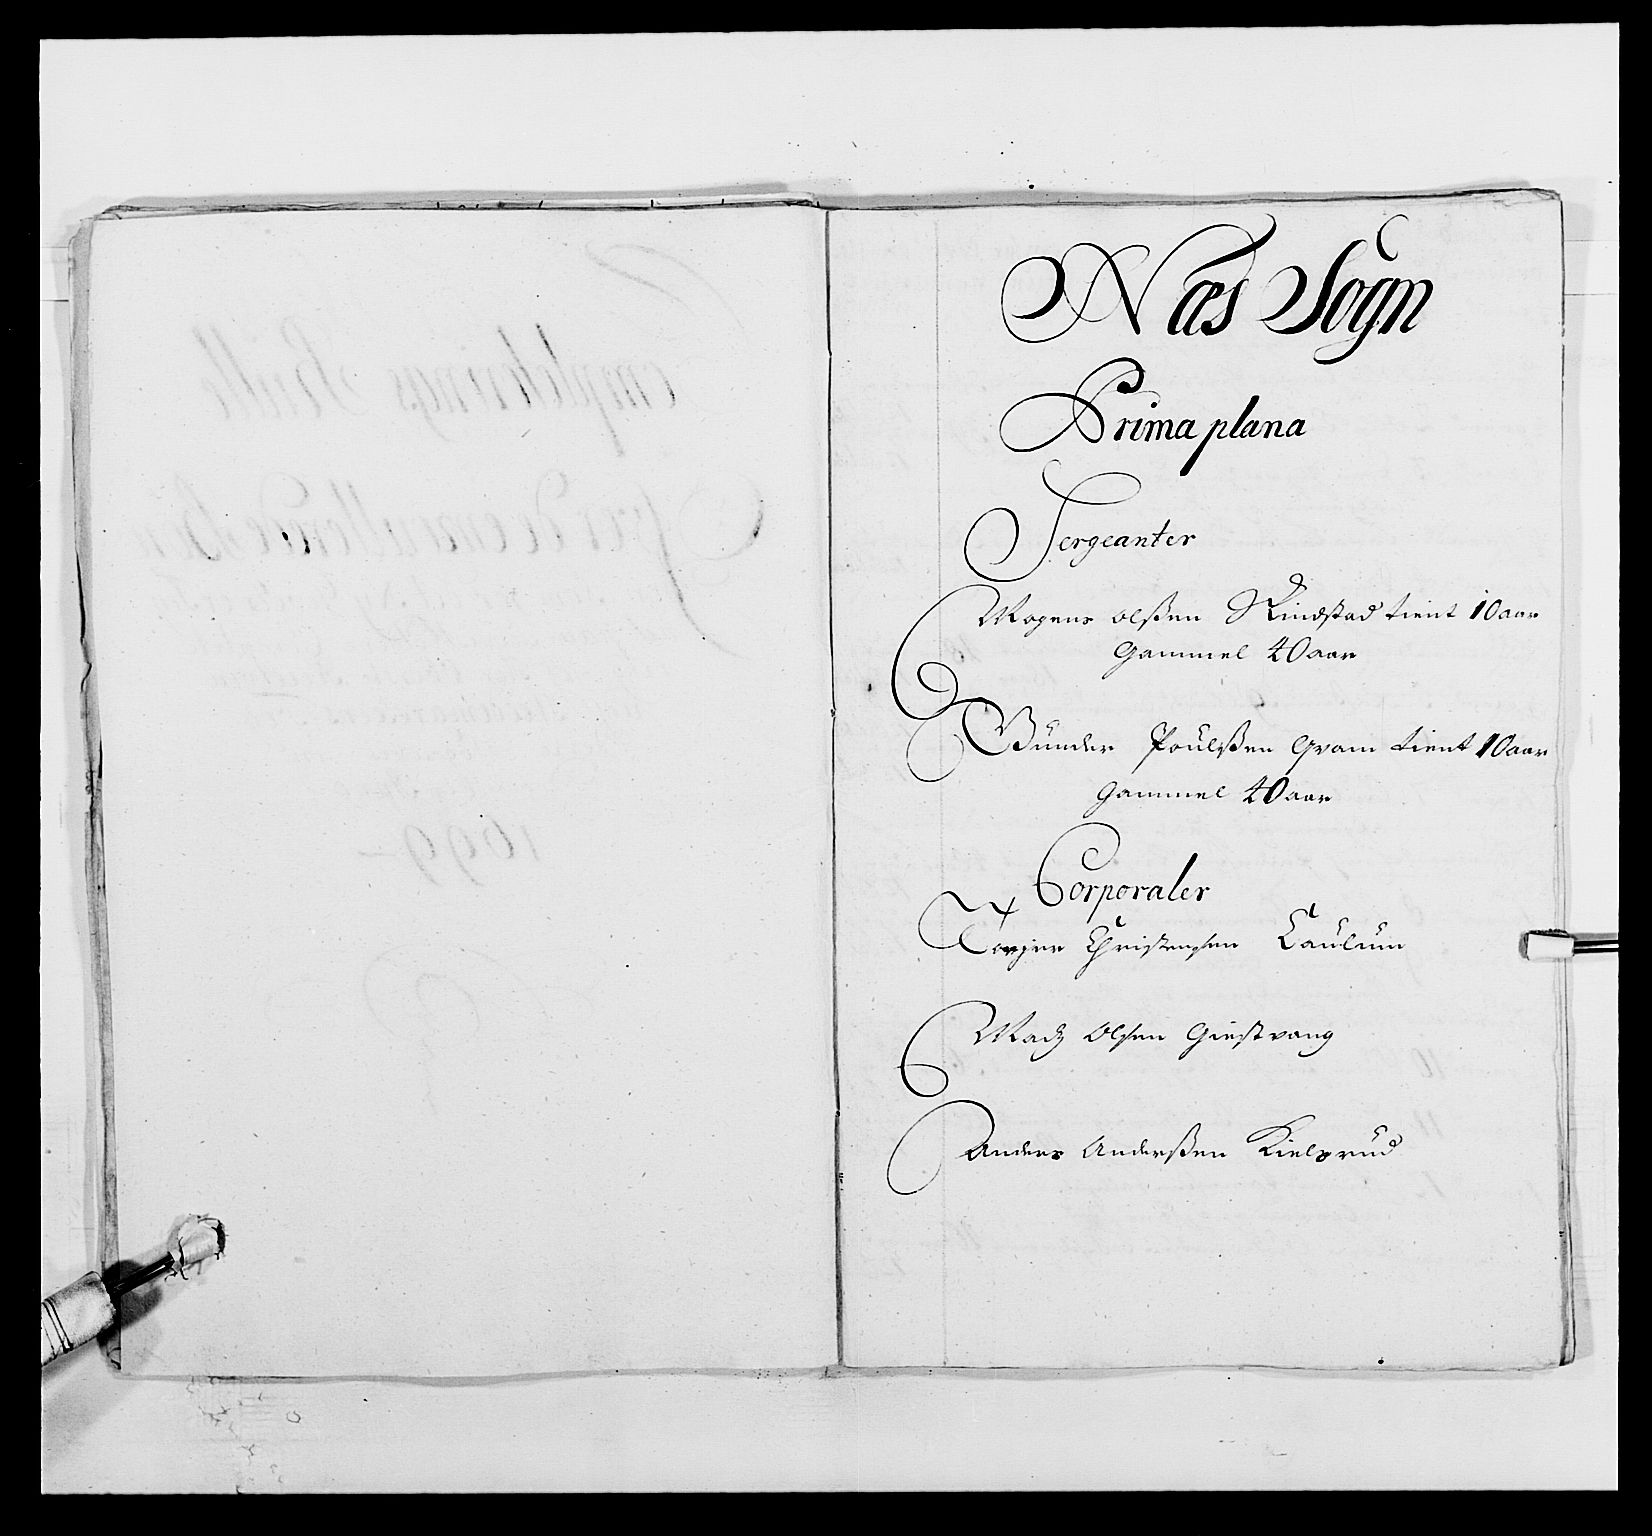 Næs Sogn
Prima plana
Sergeanter
Mogens olßen Rindstad tient 10 aar
Gammel 40 aar
Gunder Poulßen Gram tient 10 aar
Gammel 40 aar
Corporaler
Torger Christensen Caulum
Madz Olsen Giestvang
Anders Anderßen Kielsrud